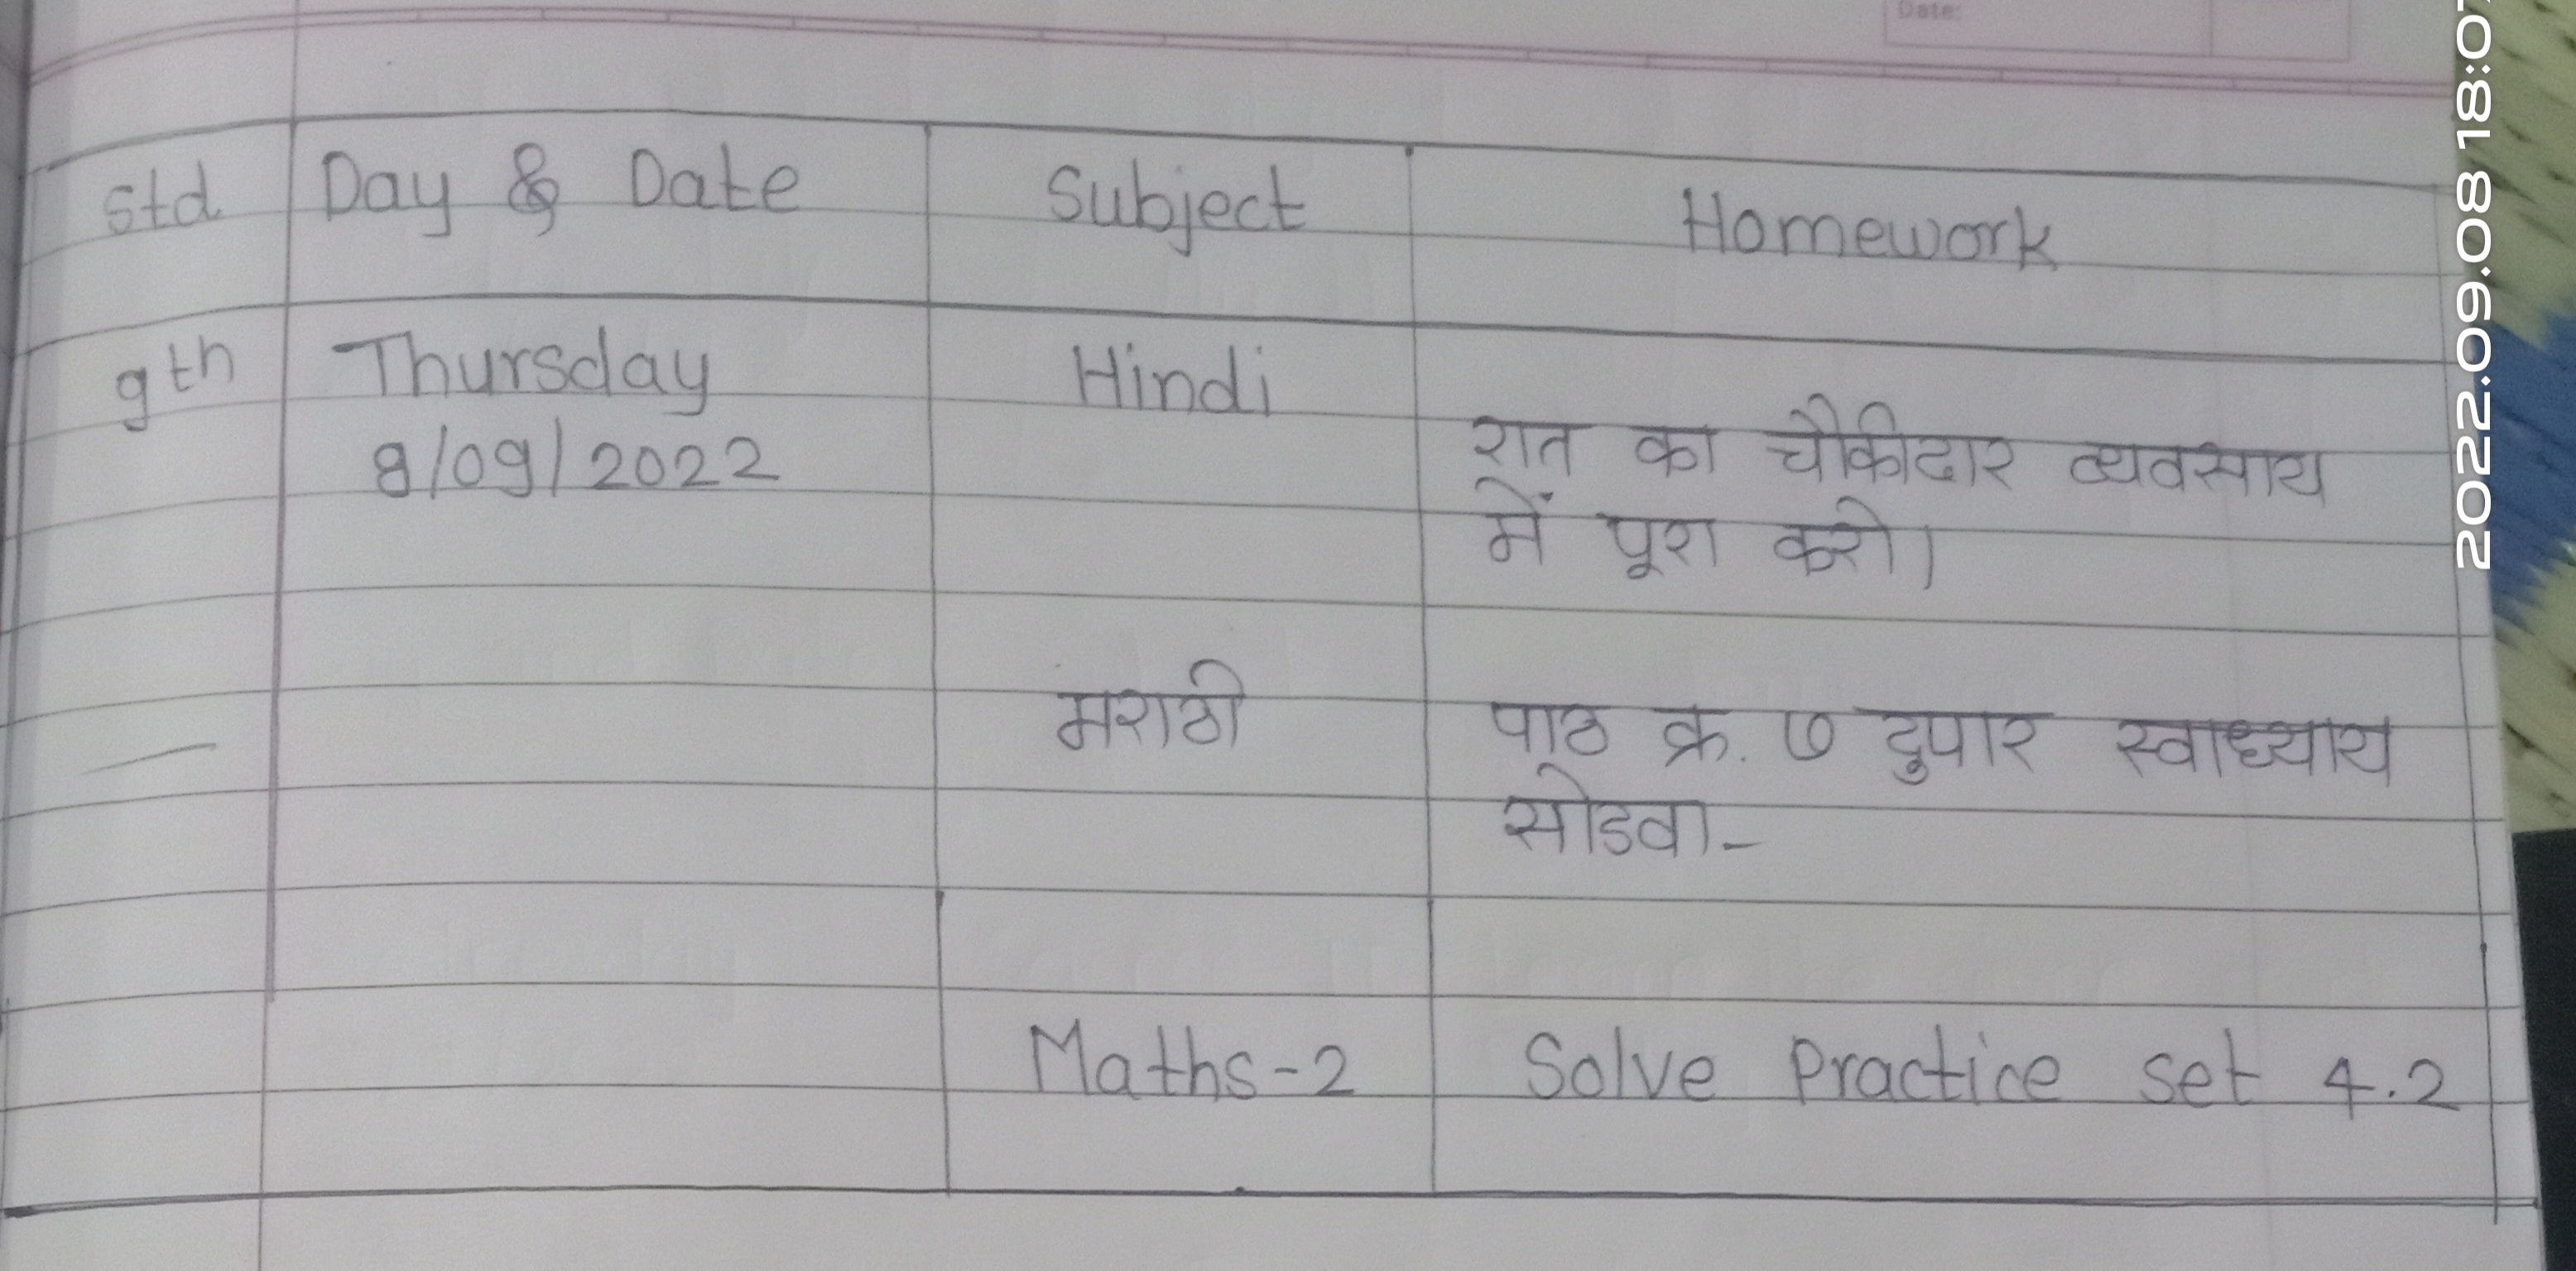 Date:
Std Day & Date Subject Homework
9th Thursday Hindi
8/09/2022 रात का चौकीदार व्यवसाय
में पूरा करो।
मराठी पाठ क्र. ७ दुपार स्वाध्याय
सोडवा-
Maths-2 Solve Practice set 4.2
2022.09.08 18:0